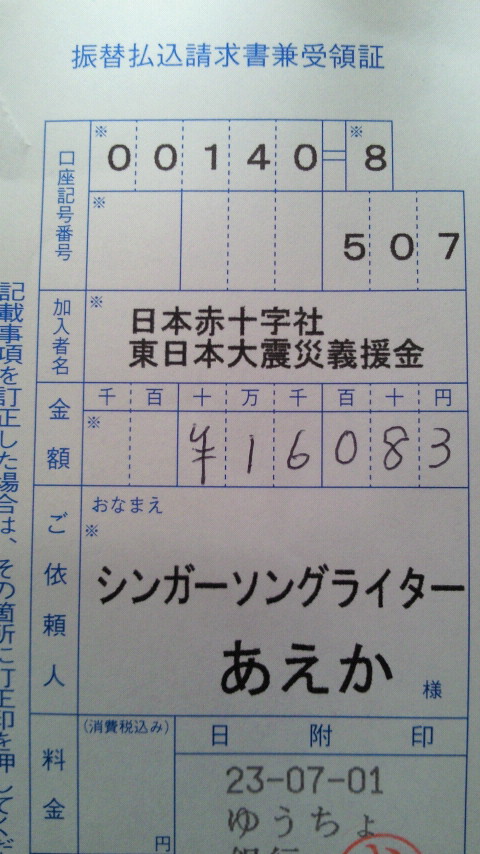 振替払込請求書兼受領証
口座記号番号
※ ※
00140=8
※
507
加入者名
※
日本赤十字社
東日本大震災義援金
金額
千 百 十 万 千 百 十 円
※
¥16083
ご依頼人
おなまえ
※
シンガーソングライター
あえか 様
料金
(消費税込み)
円
日附印
23-07-01
ゆうちょ
銀行
記載事項を訂正した場合は、その箇所に訂正印を押してくだ